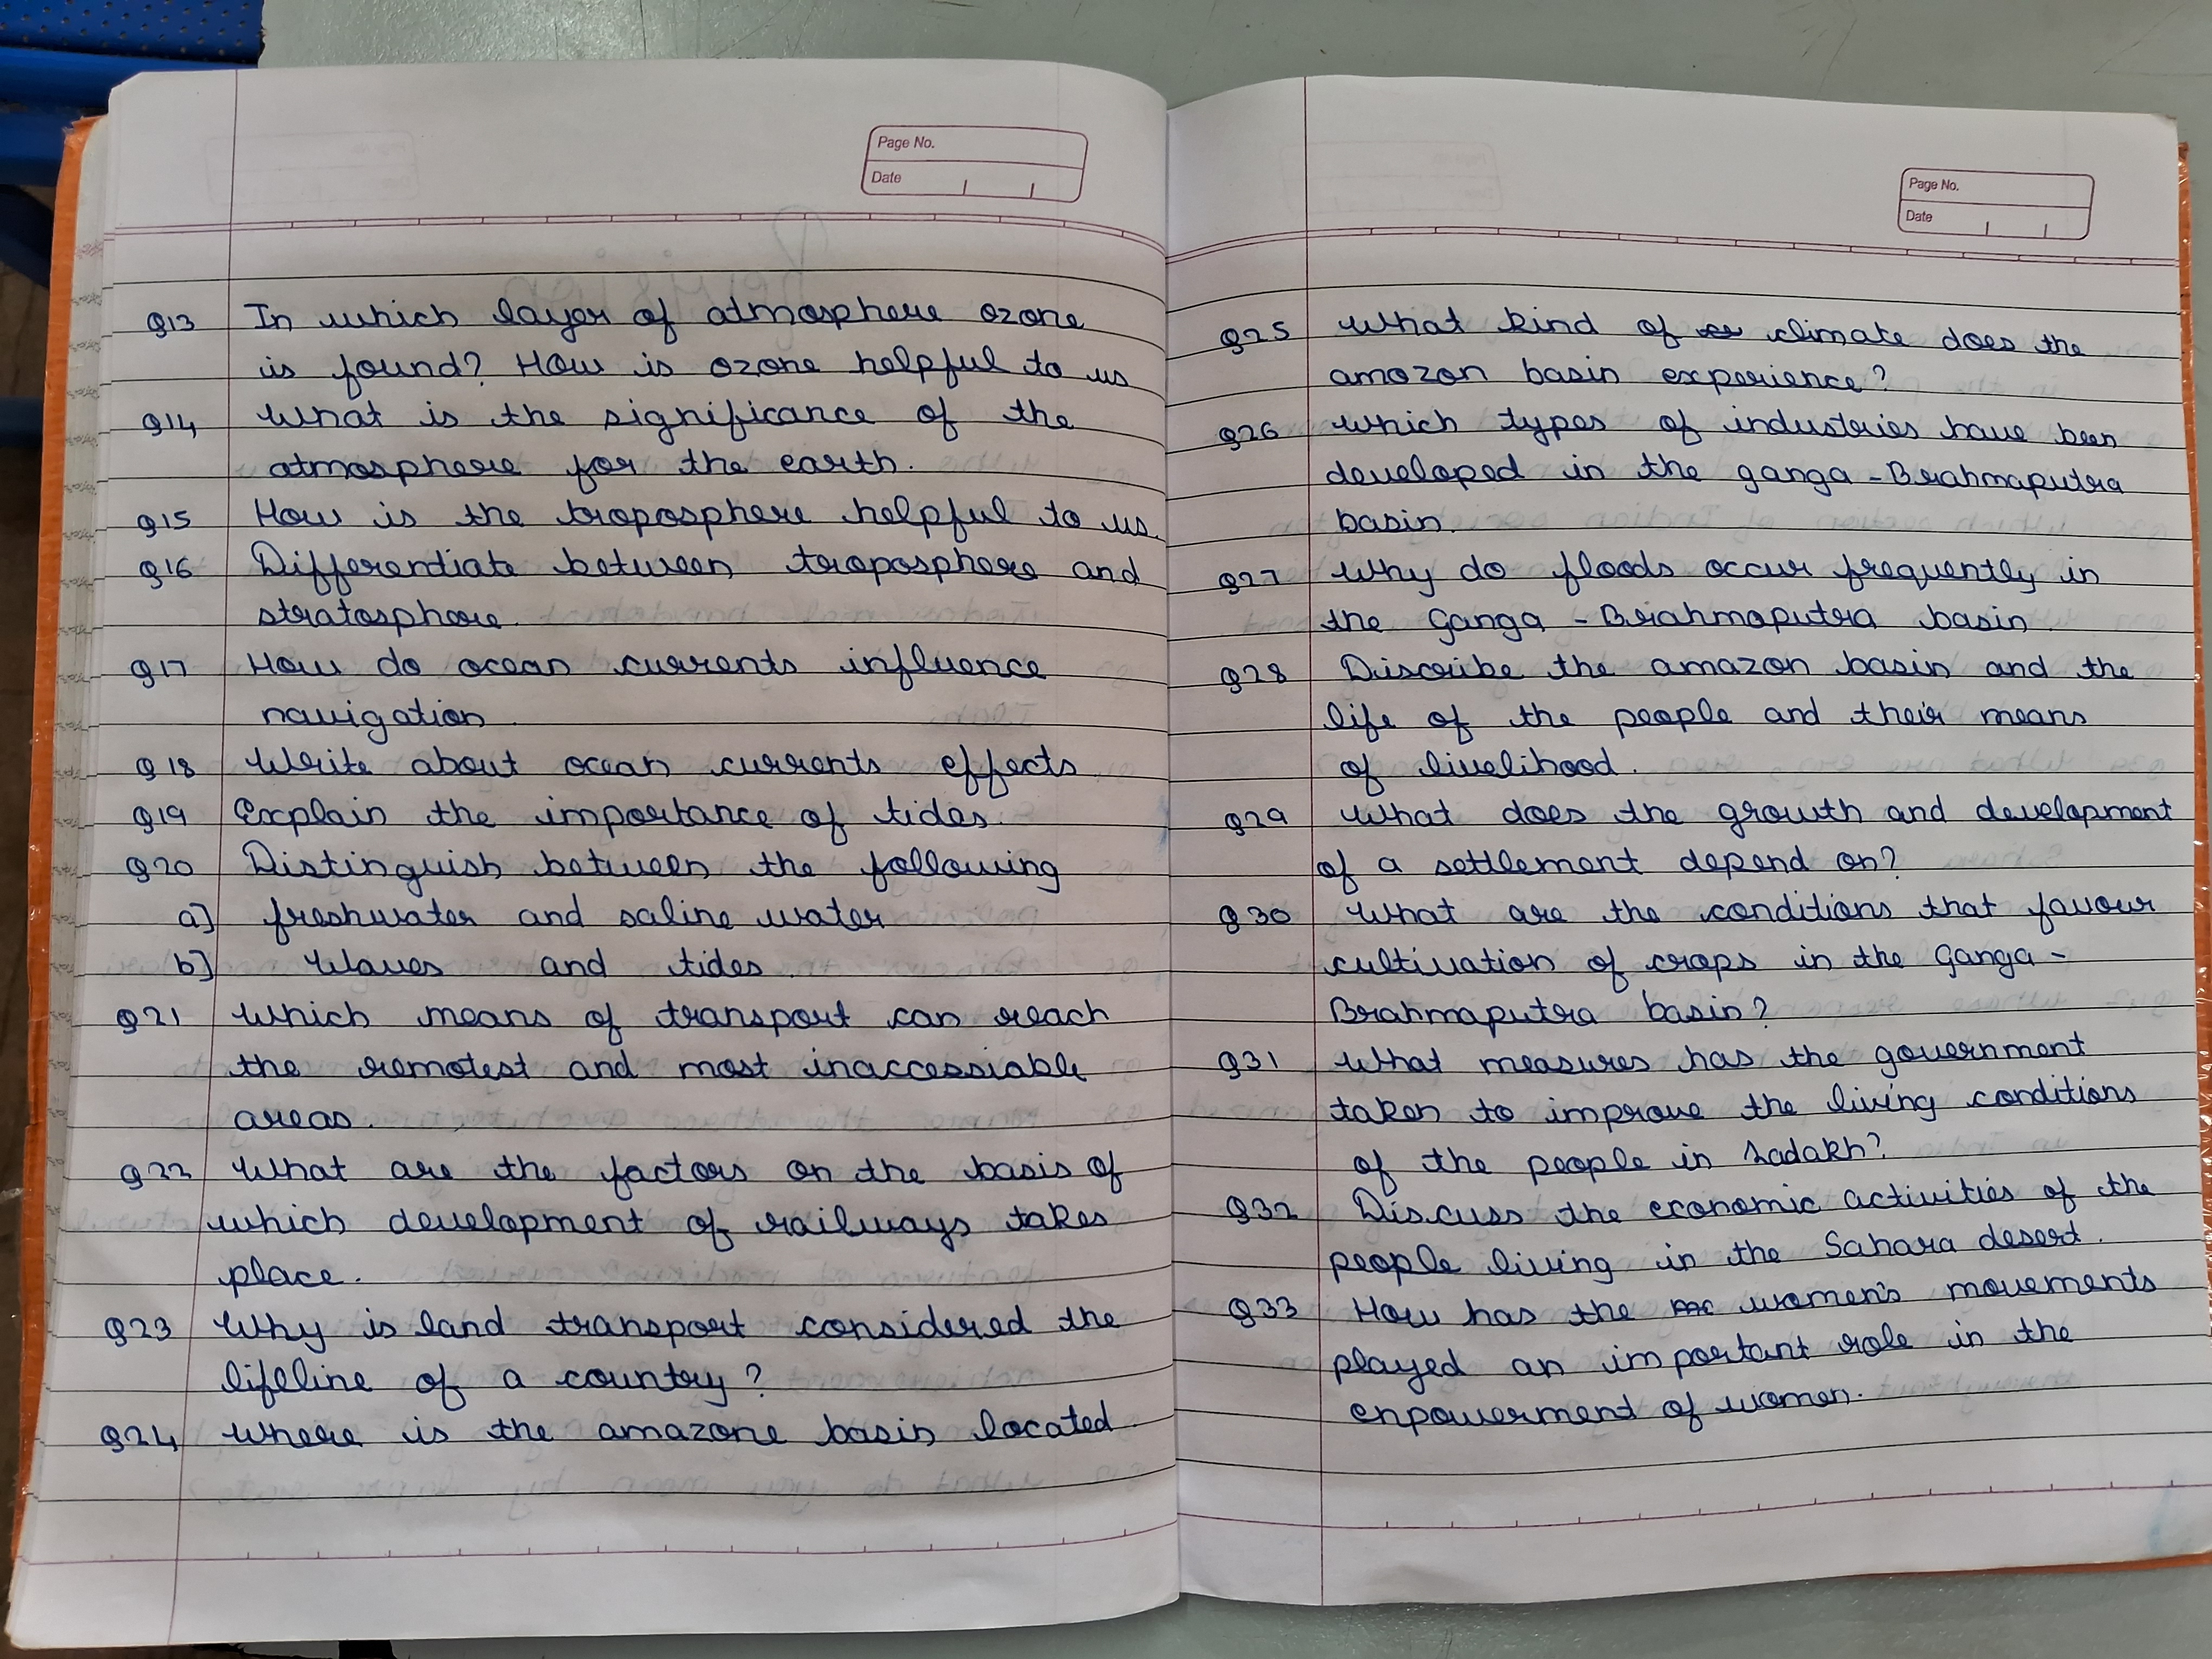 Page No.
Date
Q13 In which layer of atmosphere ozone
is found? How is ozone helpful to us
Q14 What is the significance of the
atmosphere for the earth.
Q15 How is the troposphere helpful to us.
Q16 Differentiate between troposphere and
stratosphere.
Q17 How do ocean currents influence
navigation
Q18 Write about ocean currents effects
Q19 Explain the importance of tides.
Q20 Distinguish between the following
a] freshwater and saline water
b] Waves and tides.
Q21 Which means of transport can reach
the remotest and most inaccessiable
areas.
Q22 What are the factors on the basis of
which development of railways takes
place.
Q23 Why is land transport considered the
lifeline of a country?
Q24 Where is the amazone basin located.
Page No.
Date
Q25 What kind of climate does the
amozon basin experience?
Q26 Which types of industries have been
developed in the ganga - Brahmaputra
basin.
Q27 Why do floods occur frequently in
the Ganga - Brahmaputra basin.
Q28 Discribe the amazon basin and the
life of the people and their means
of livelihood.
Q29 What does the growth and development
of a settlement depend on?
Q30 What are the conditions that favour
cultivation of crops in the Ganga -
Brahmaputra basin?
Q31 What measures has the government
taken to improve the living conditions
of the people in Ladakh?
Q32 Discuss the economic activities of the
people living in the Sahara desert.
Q33 How has the women's movements
played an important role in the
enpowerment of women.